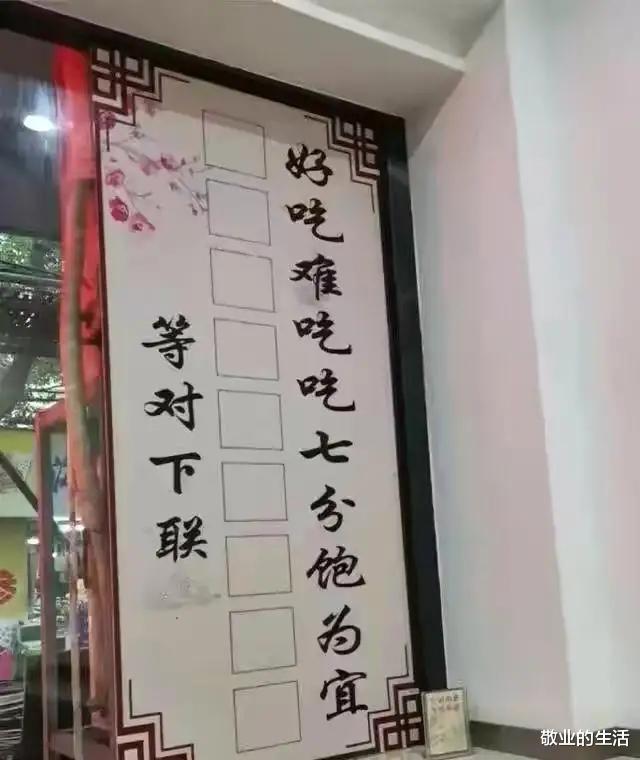 好吃难吃吃七分饱为宜
等对下联
敬业的生活